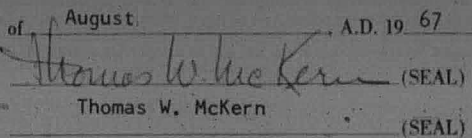 of August, A.D. 19 67
Thomas W. McKern (SEAL)
Thomas W. McKern
(SEAL)